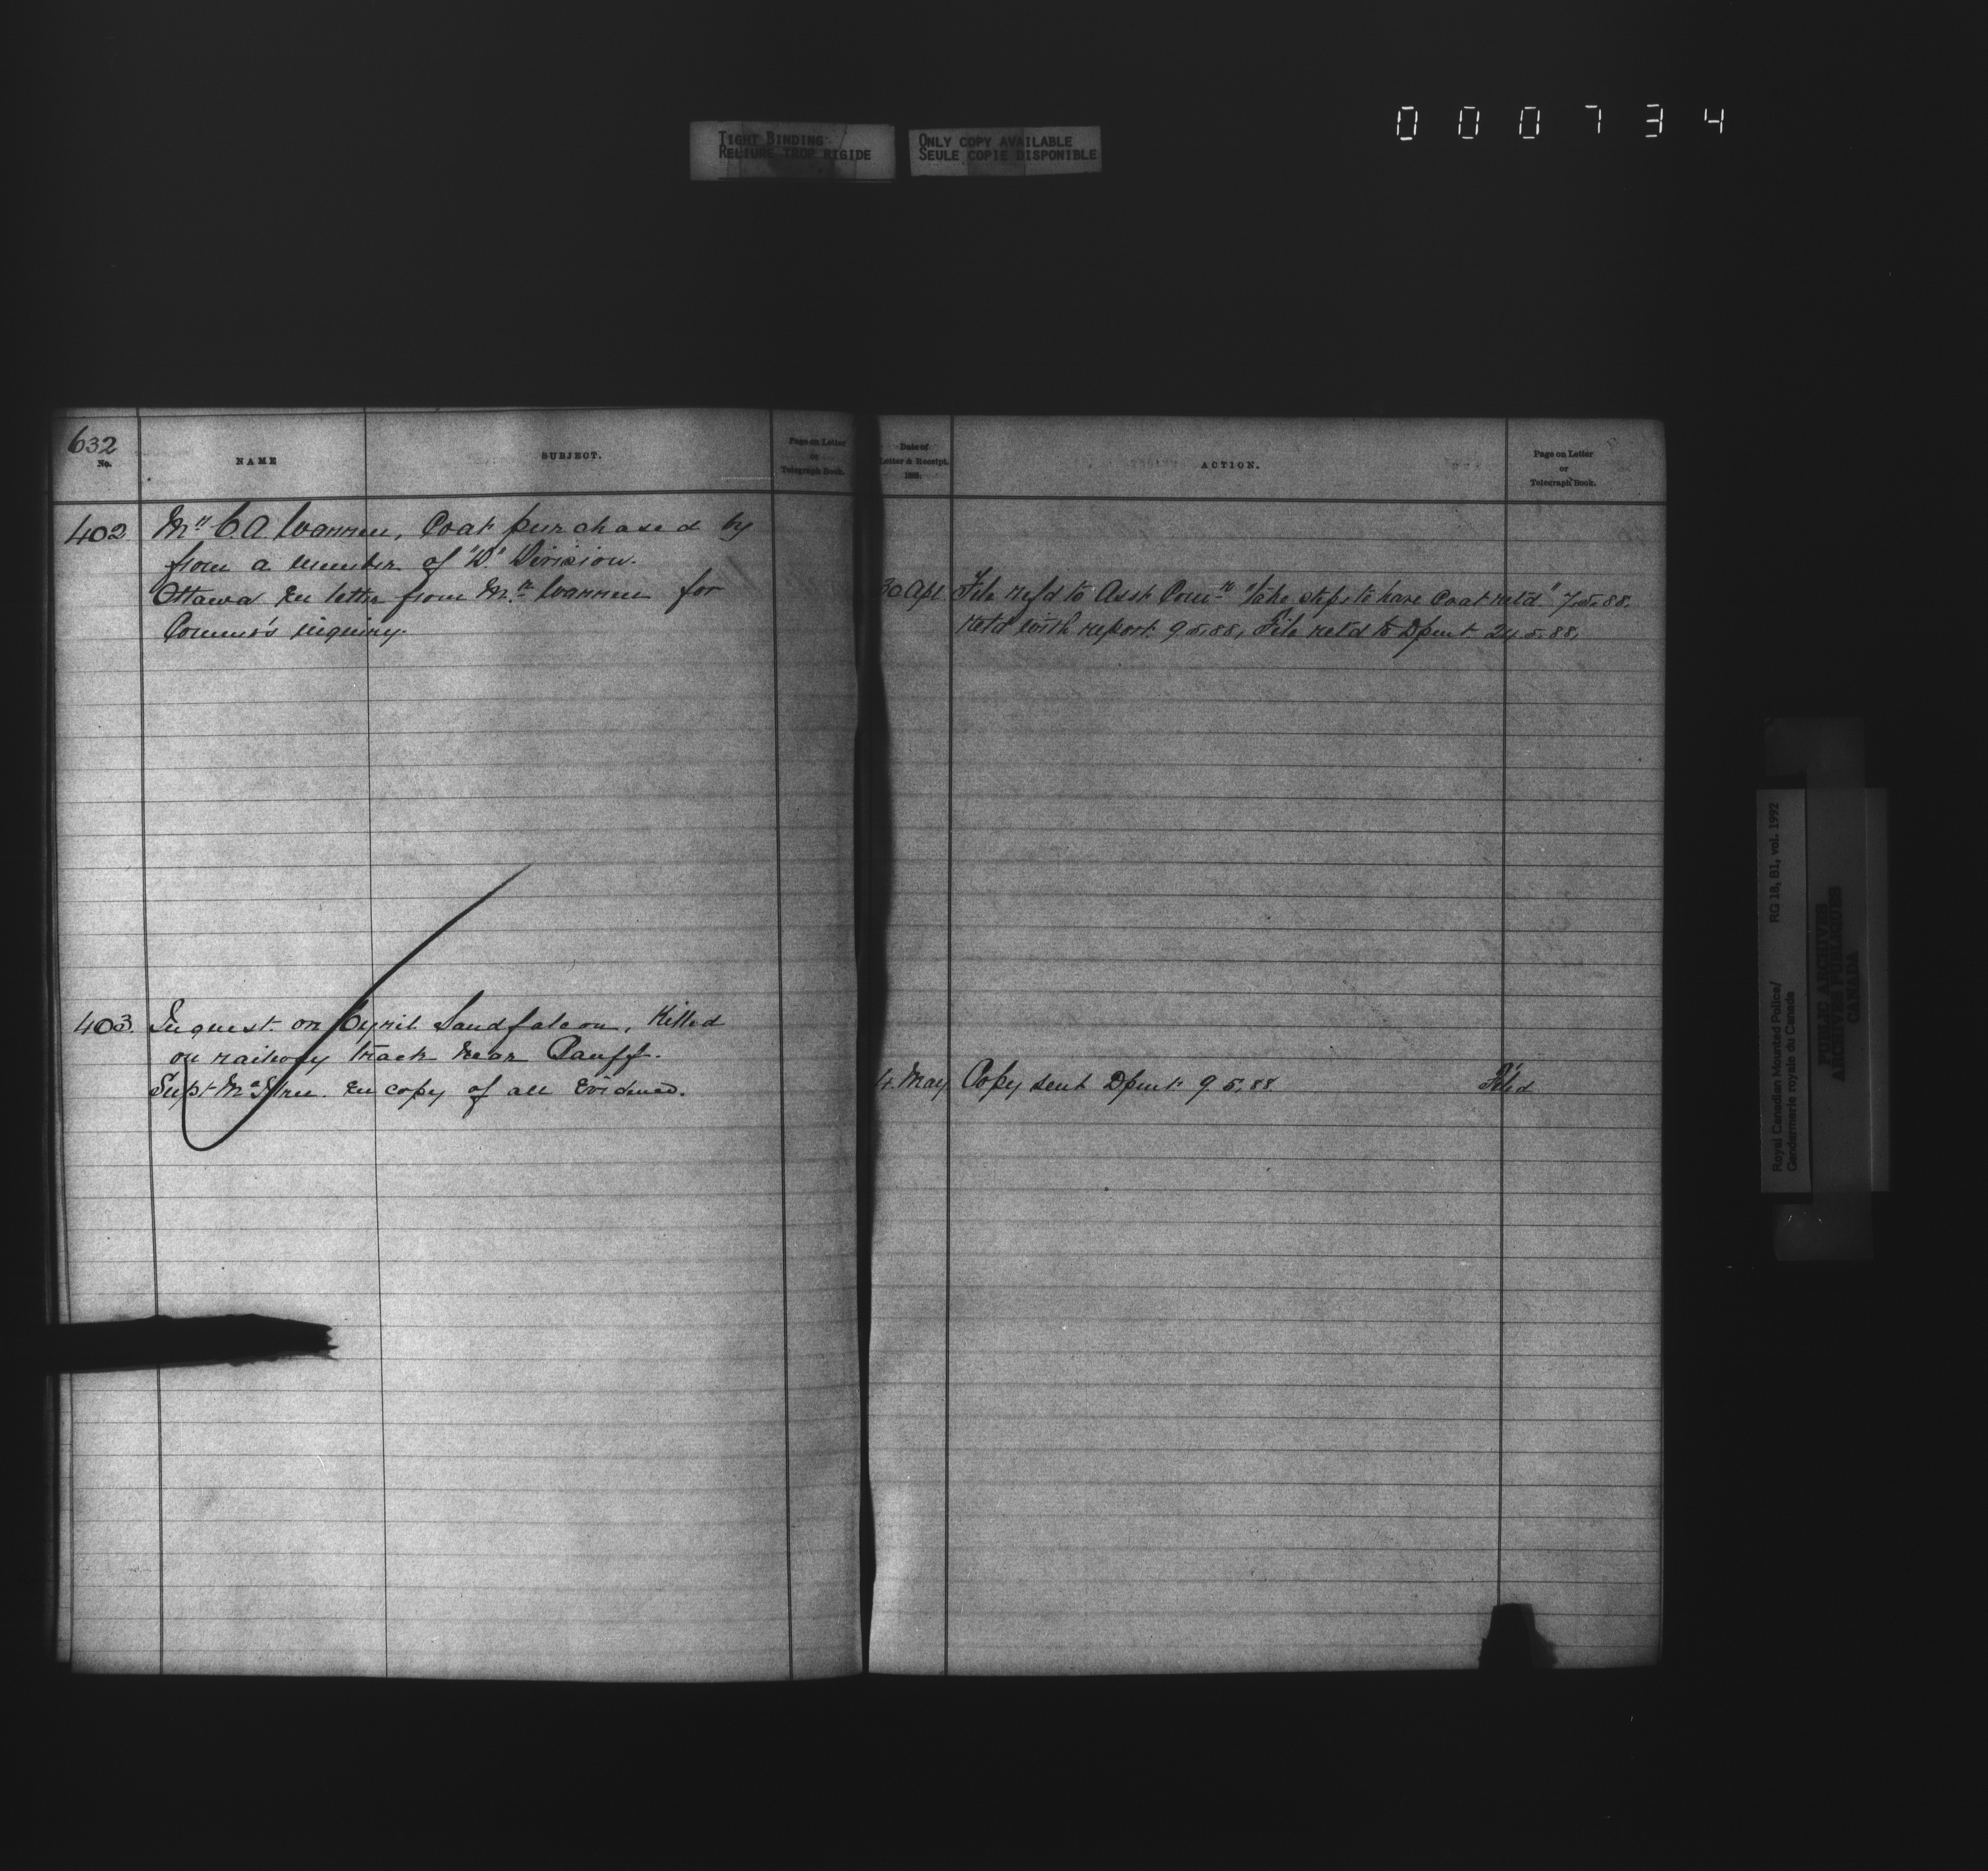 000734
TIGHT BINDING
RELIURE TROP RIGIDE
ONLY COPY AVAILABLE
SEULE COPIE DISPONIBLE
632
No.
NAME
SUBJECT.
Page on Letter
or
Telegraph Book.
402 Mr C.A. Warren, Coat purchased by
from a member of "D" Division.
Ottawa En letter from Mr Warren for
Commr's inquiry.
403. Inquest on Cyril Sandfalcon, Killed
on railway track near Banff.
Supt McIllree. En copy of all Evidence.
Date of
Letter & Receipt.
188
ACTION.
Page on Letter
or
Telegraph Book.
30 Apl File refd to Asst Comr "take steps to have Coat retd." 7.5.88.
retd with report. 9.5.88, File retd to Dpmt 24.5.88.
4. May Copy sent Dpmt 9.5.88. Filed
Royal Canadian Mounted Police/ RG 18, B1, vol. 1992
Gendarmerie royale du Canada
PUBLIC ARCHIVES
ARCHIVES PUBLIQUES
CANADA